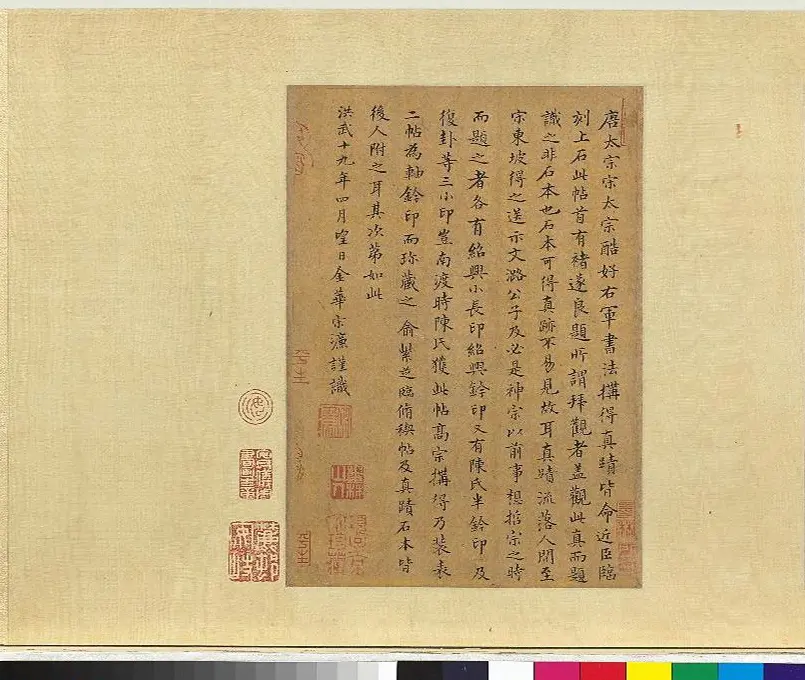 唐太宗宋太宗酷好右軍書法搆得真蹟皆命近臣臨
刻上石此帖首有褚遂良題所謂拜觀者蓋觀此真而題
識之非石本也石本可得真跡不易見故耳真蹟流落人間至
宋東坡得之送示文潞公子及必是神宗以前事想哲宗之時
而題之者各有紹興小長印紹興鈐印又有陳氏半鈐印及
復卦等三小印豈南渡時陳氏獲此帖高宗搆得乃裝表
二帖為軸鈐印而珎藏之俞紫芝臨脩禊帖及真蹟石本皆
後人附之耳其次第如此
洪武十九年四月望日金華宋濂謹識